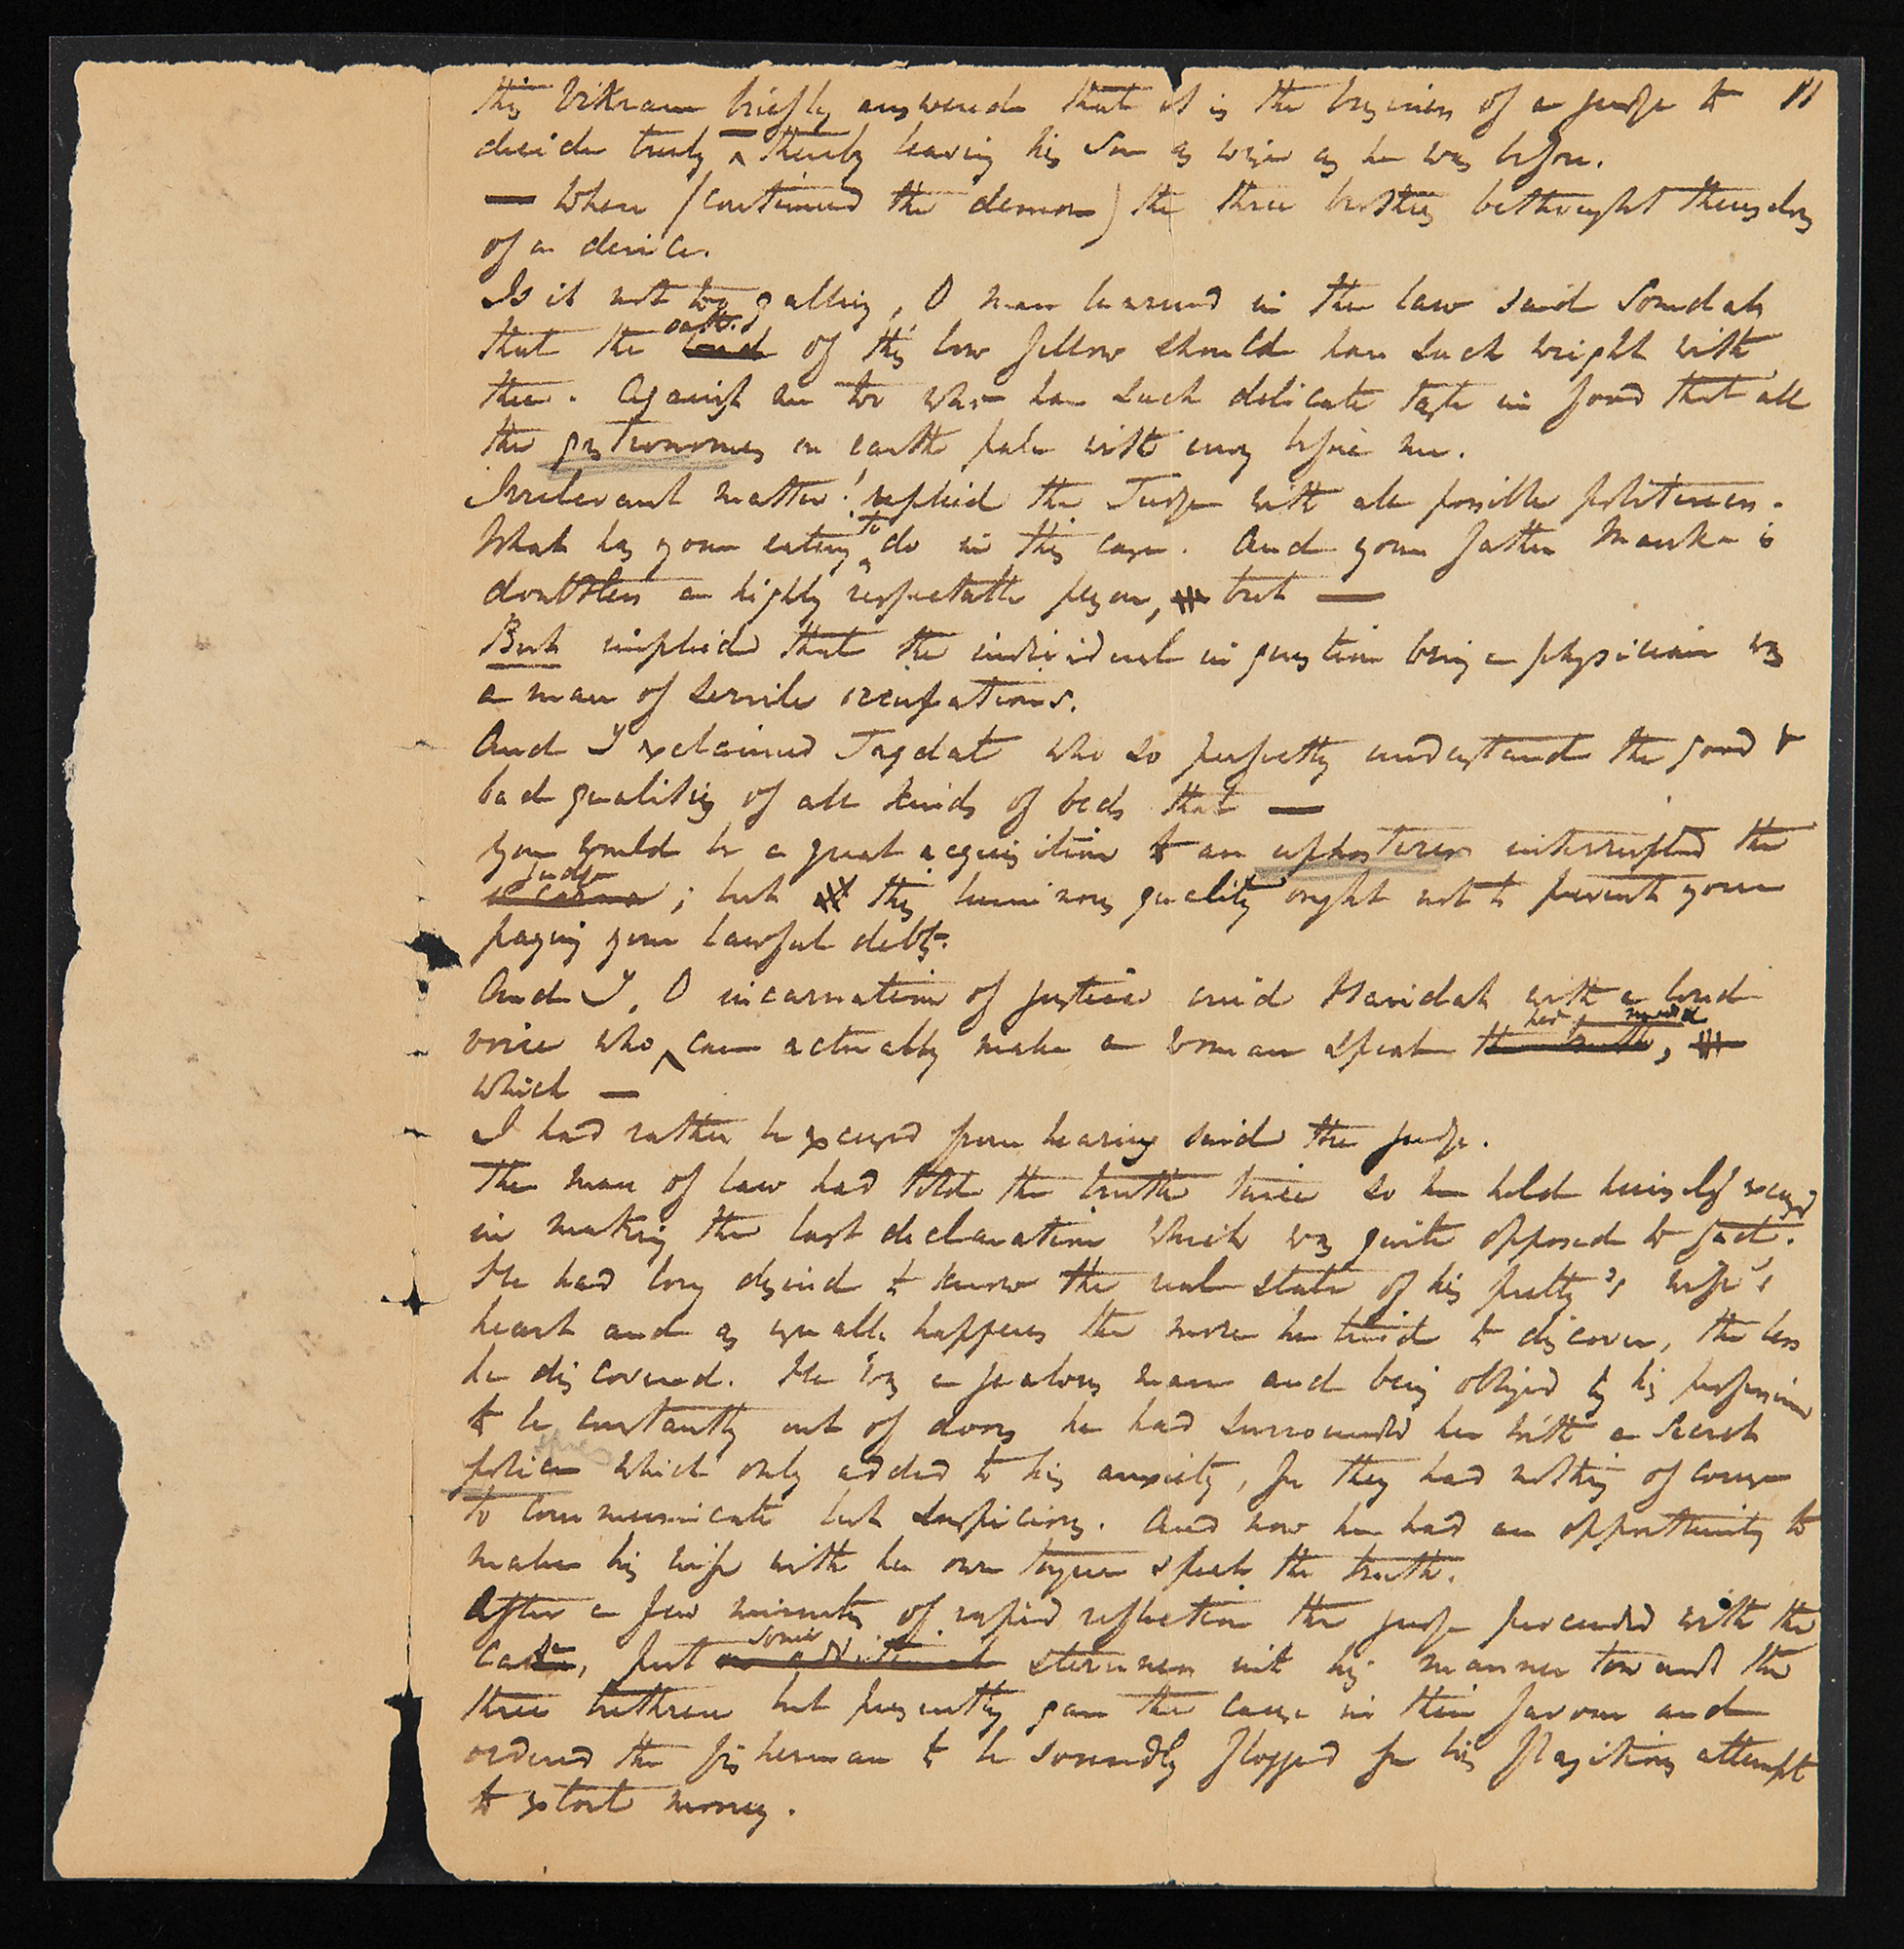 this Vikram briefly answered that it is the business of a judge to 11
decide truly thereby leaving his Son as wise as he was before.
— When (continued the demon) the three brothers bethought themselves
of a device.
Is it not too galling, O man learned in the law said Somdah
that the oath of this low fellow should have such weight with
thee. Against me too who have such delicate taste in food that all
the gastronomes on earth pale with envy before me.
Irrelevant matter! replied the Judge with all possible politeness.
What has your eating to do in this case. And your father is
doubtless a highly respectable person, but —
But implied that the individual in question being a physician was
a man of servile occupations.
And I exclaimed Jagdat who so perfectly understand the good &
bad qualities of all kinds of beds that —
you would be a great acquisition to an upholsterer interrupted the
judge; but this luminous quality ought not to prevent your
paying your lawful debts.
And I, O incarnation of justice cried Haridah with a loud
voice who can actually make a woman speak her mind,
which —
I had rather be excused from hearing said the judge.
The man of law had told the truth twice so he held himself excused
in making the last declaration which was quite opposed to fact.
He had long desired to know the real state of his pretty wife's
heart and as usually happens the more he tried to discover, the less
he discovered. He was a jealous man and being obliged by his profession
to be constantly out of doors he had surrounded her with a secret
spies
police which only added to his anxiety, for they had nothing of course
to communicate but suspicions. And now he had an opportunity to
make his wife with her own tongue speak the truth.
After a few minutes of rapid reflection the judge proceeded with the
case, put some sternness into his manner towards the
three brethren but presently gave the cause in their favour and
ordered the fisherman to be soundly flogged for his flagitious attempt
to extort money.